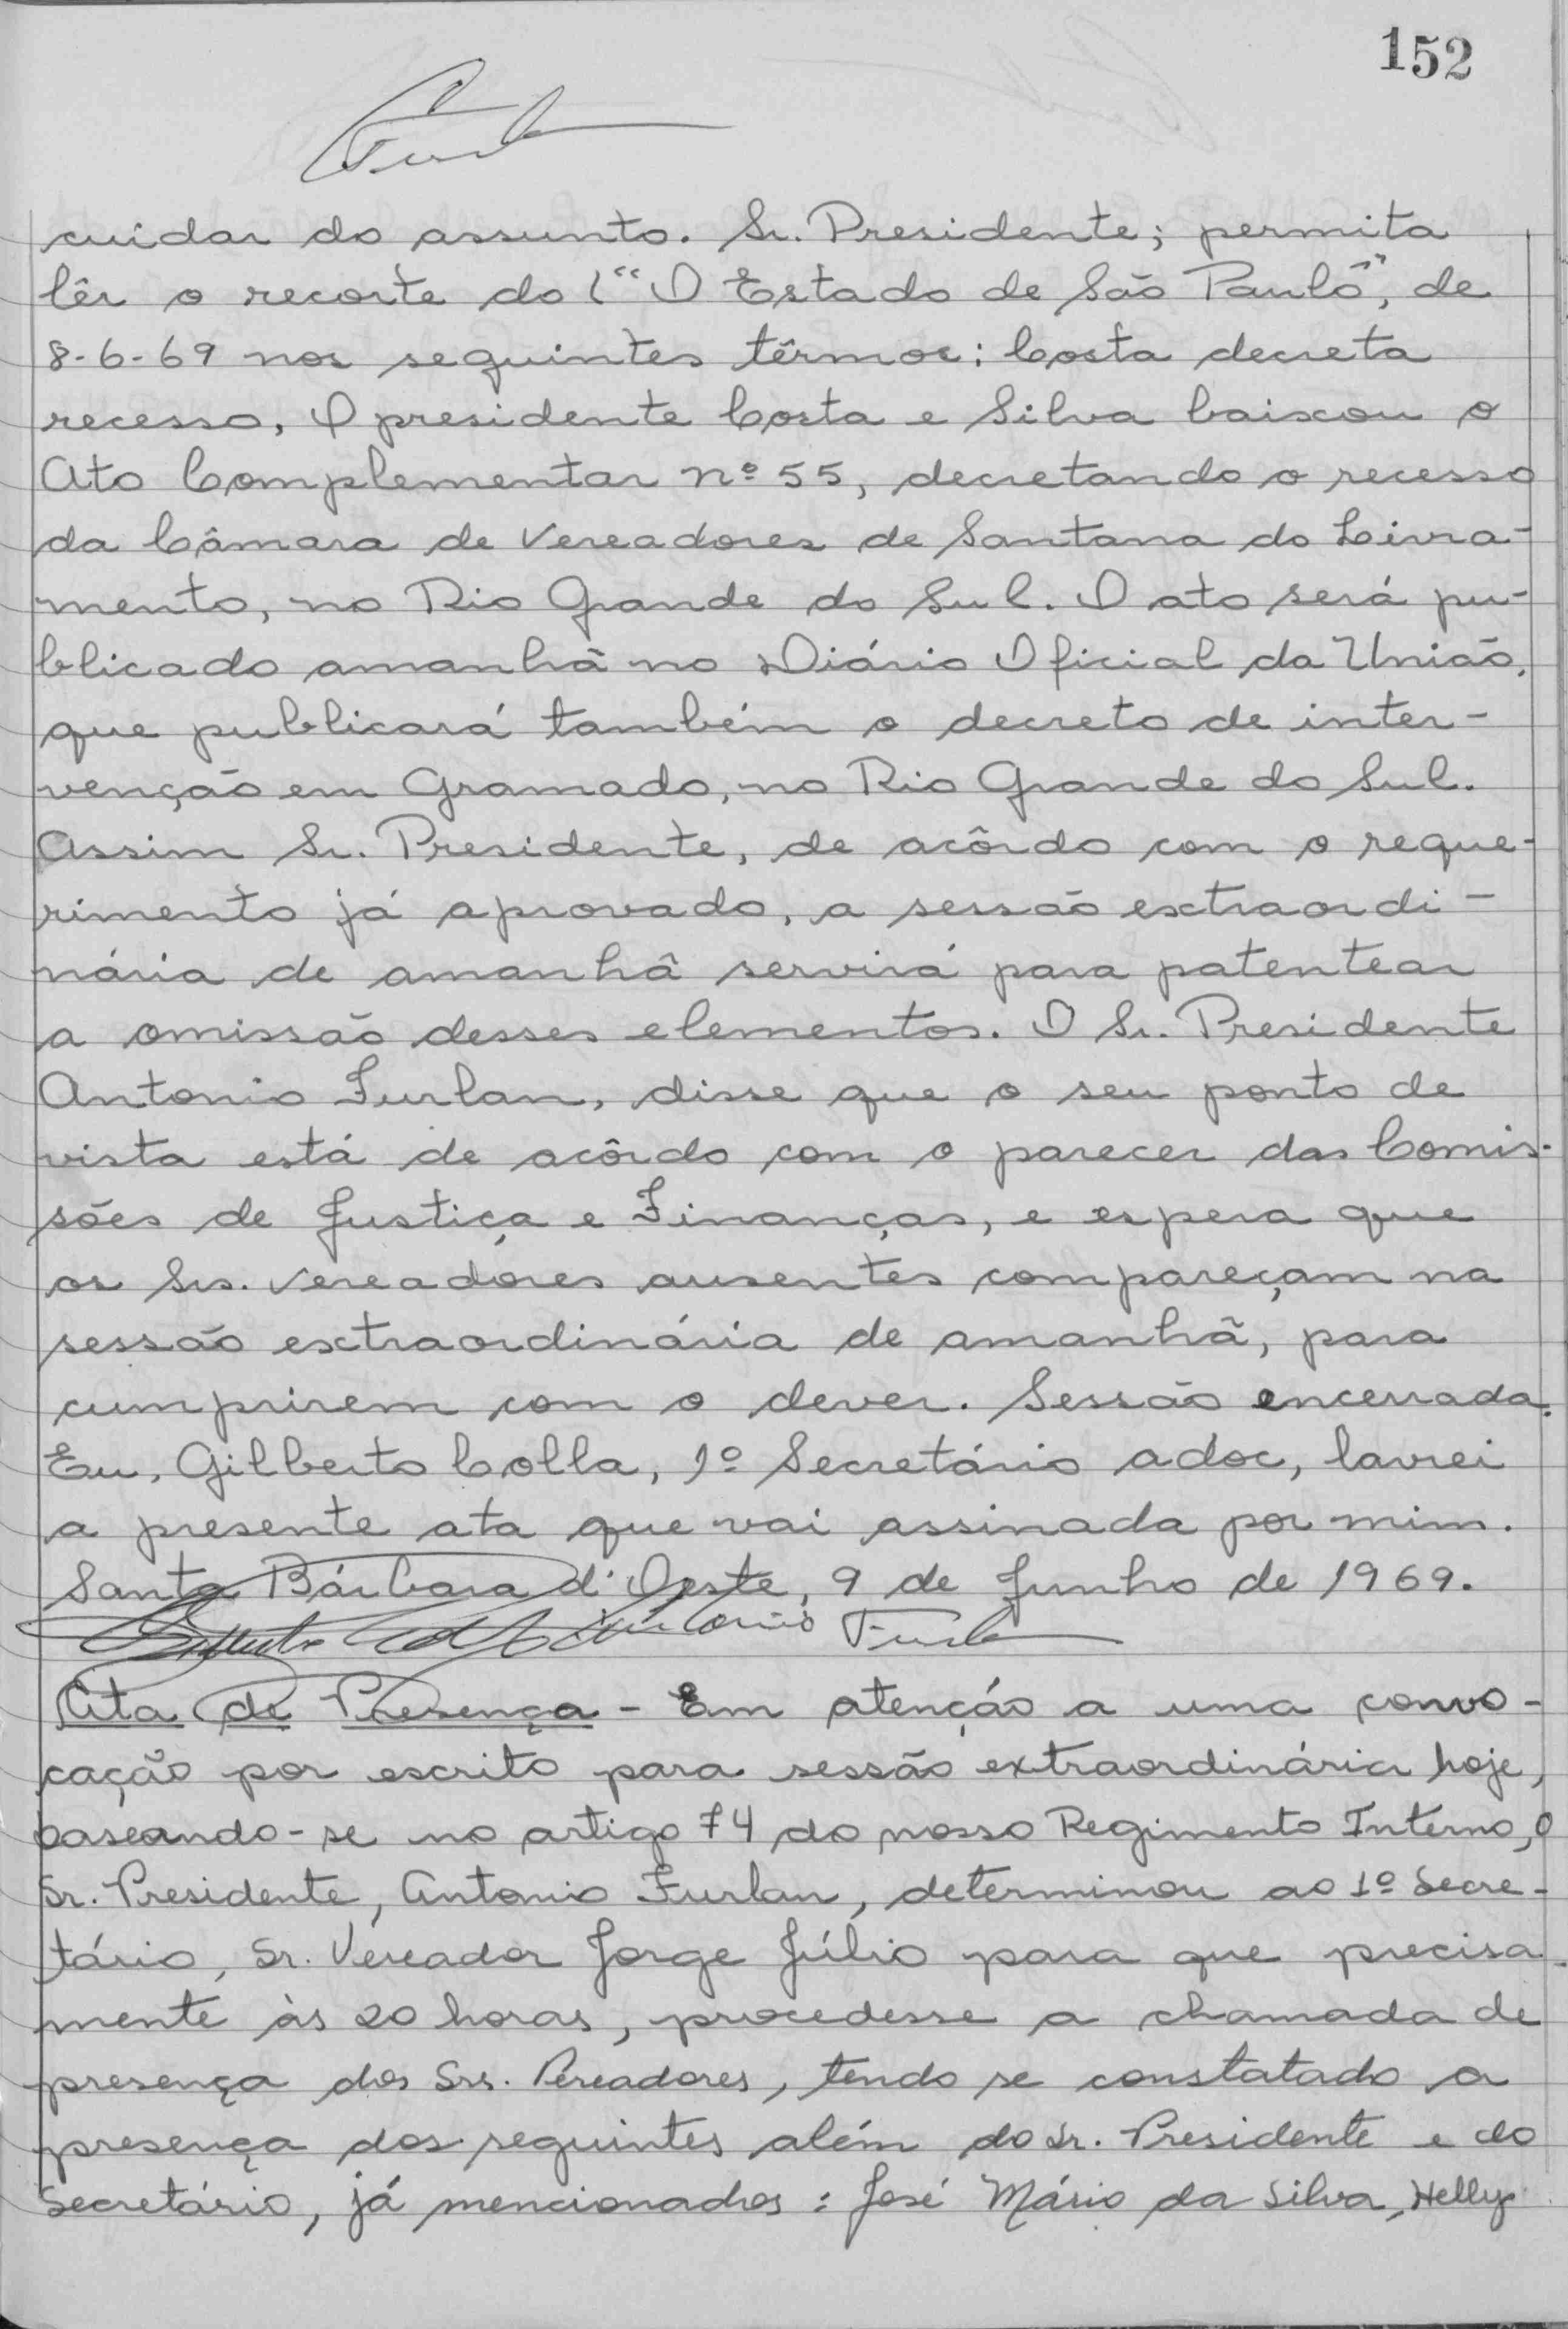 152
cuidar do assunto. Sr. Presidente; permita
lêr o recorte do (“O Estado de São Paulô”, de
8-6-69 nos seguintes têrmos: Costa decreta
recesso, O presidente Costa e Silva baixou o
Ato Complementar nº 55, decretando o recesso
da Câmara de Vereadores de Santana do Livra-
mento, no Rio Grande do Sul. O ato será pu-
blicado amanhã no Diário Oficial da União,
que publicará também o decreto de inter-
venção em Gramado, no Rio Grande do Sul.
Assim Sr. Presidente, de acôrdo com o reque-
rimento já aprovado, a sessão extraordi-
nária de amanhã servirá para patentear
a omissão desses elementos. O Sr. Presidente
Antonio Furlan, disse que o seu ponto de
vista está de acôrdo com o parecer das Comis-
sões de Justiça e Finanças, e espera que
os Srs. Vereadores ausentes compareçam na
sessão extraordinária de amanhã, para
cumprirem com o dever. Sessão encerrada.
Eu, Gilberto Colla, 1º Secretário adoc, lavrei
a presente ata que vai assinada por mim.
Santa Bárbara d'Oeste, 9 de Junho de 1969.
Antonio Furlan
Ata de Presença - Em atenção a uma convo-
cação por escrito para sessão extraordinária hoje,
baseando-se no artigo 74 do nosso Regimento Interno, O
Sr. Presidente, Antonio Furlan, determinou ao 1º Secre-
tário, Sr. Vereador Jorge Júlio para que precisa-
mente às 20 horas, procedesse a chamada de
presença dos Srs. Vereadores, tendo se constatado a
presença dos seguintes além do Sr. Presidente e do
Secretário, já mencionados: José Mário da Silva, Helly